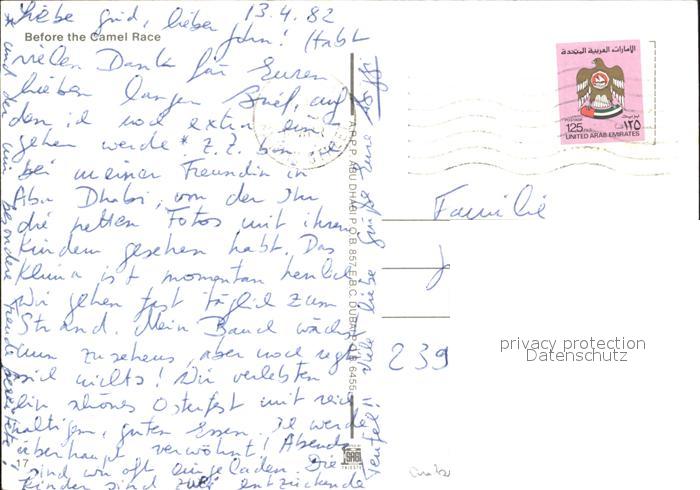 13.4.82
Liebe Grid, lieber
John! Habt
Before the Camel Race
vielen Dank für Euren
lieben langen Brief, auf
den ich noch extra ein-
gehen werde * Z.Z. bin ich
bei meiner Freundin in
Abu Dhabi, von der Ihr
die netten Fotos mit ihren
Kindern gesehen habt. Das
Klima ist momentan herrlich
Wir gehen fast täglich zum
Strand. Mein Bauch wächst
zum zusehens, aber noch regt
sich nichts! Wir verlebten
ein schönes Osterfest mit reich
haltigem, guten Essen. Ich werde
überhaupt verwöhnt! Abends
sind wir oft eingeladen. Die
Kinder sind zwei entzückende
17
Teufel!! Viele liebe Grüße Eure
* und der mir besondere Freude bereitete!
A.P.P.P. ABU DHABI P.O.B. 857-E.B.C. DUBAI P.O.B. 6455
الامارات العربية المتحدة
125
١٢٥
UNITED ARAB EMIRATES
Familie
J
239
privacy protection
Datenschutz